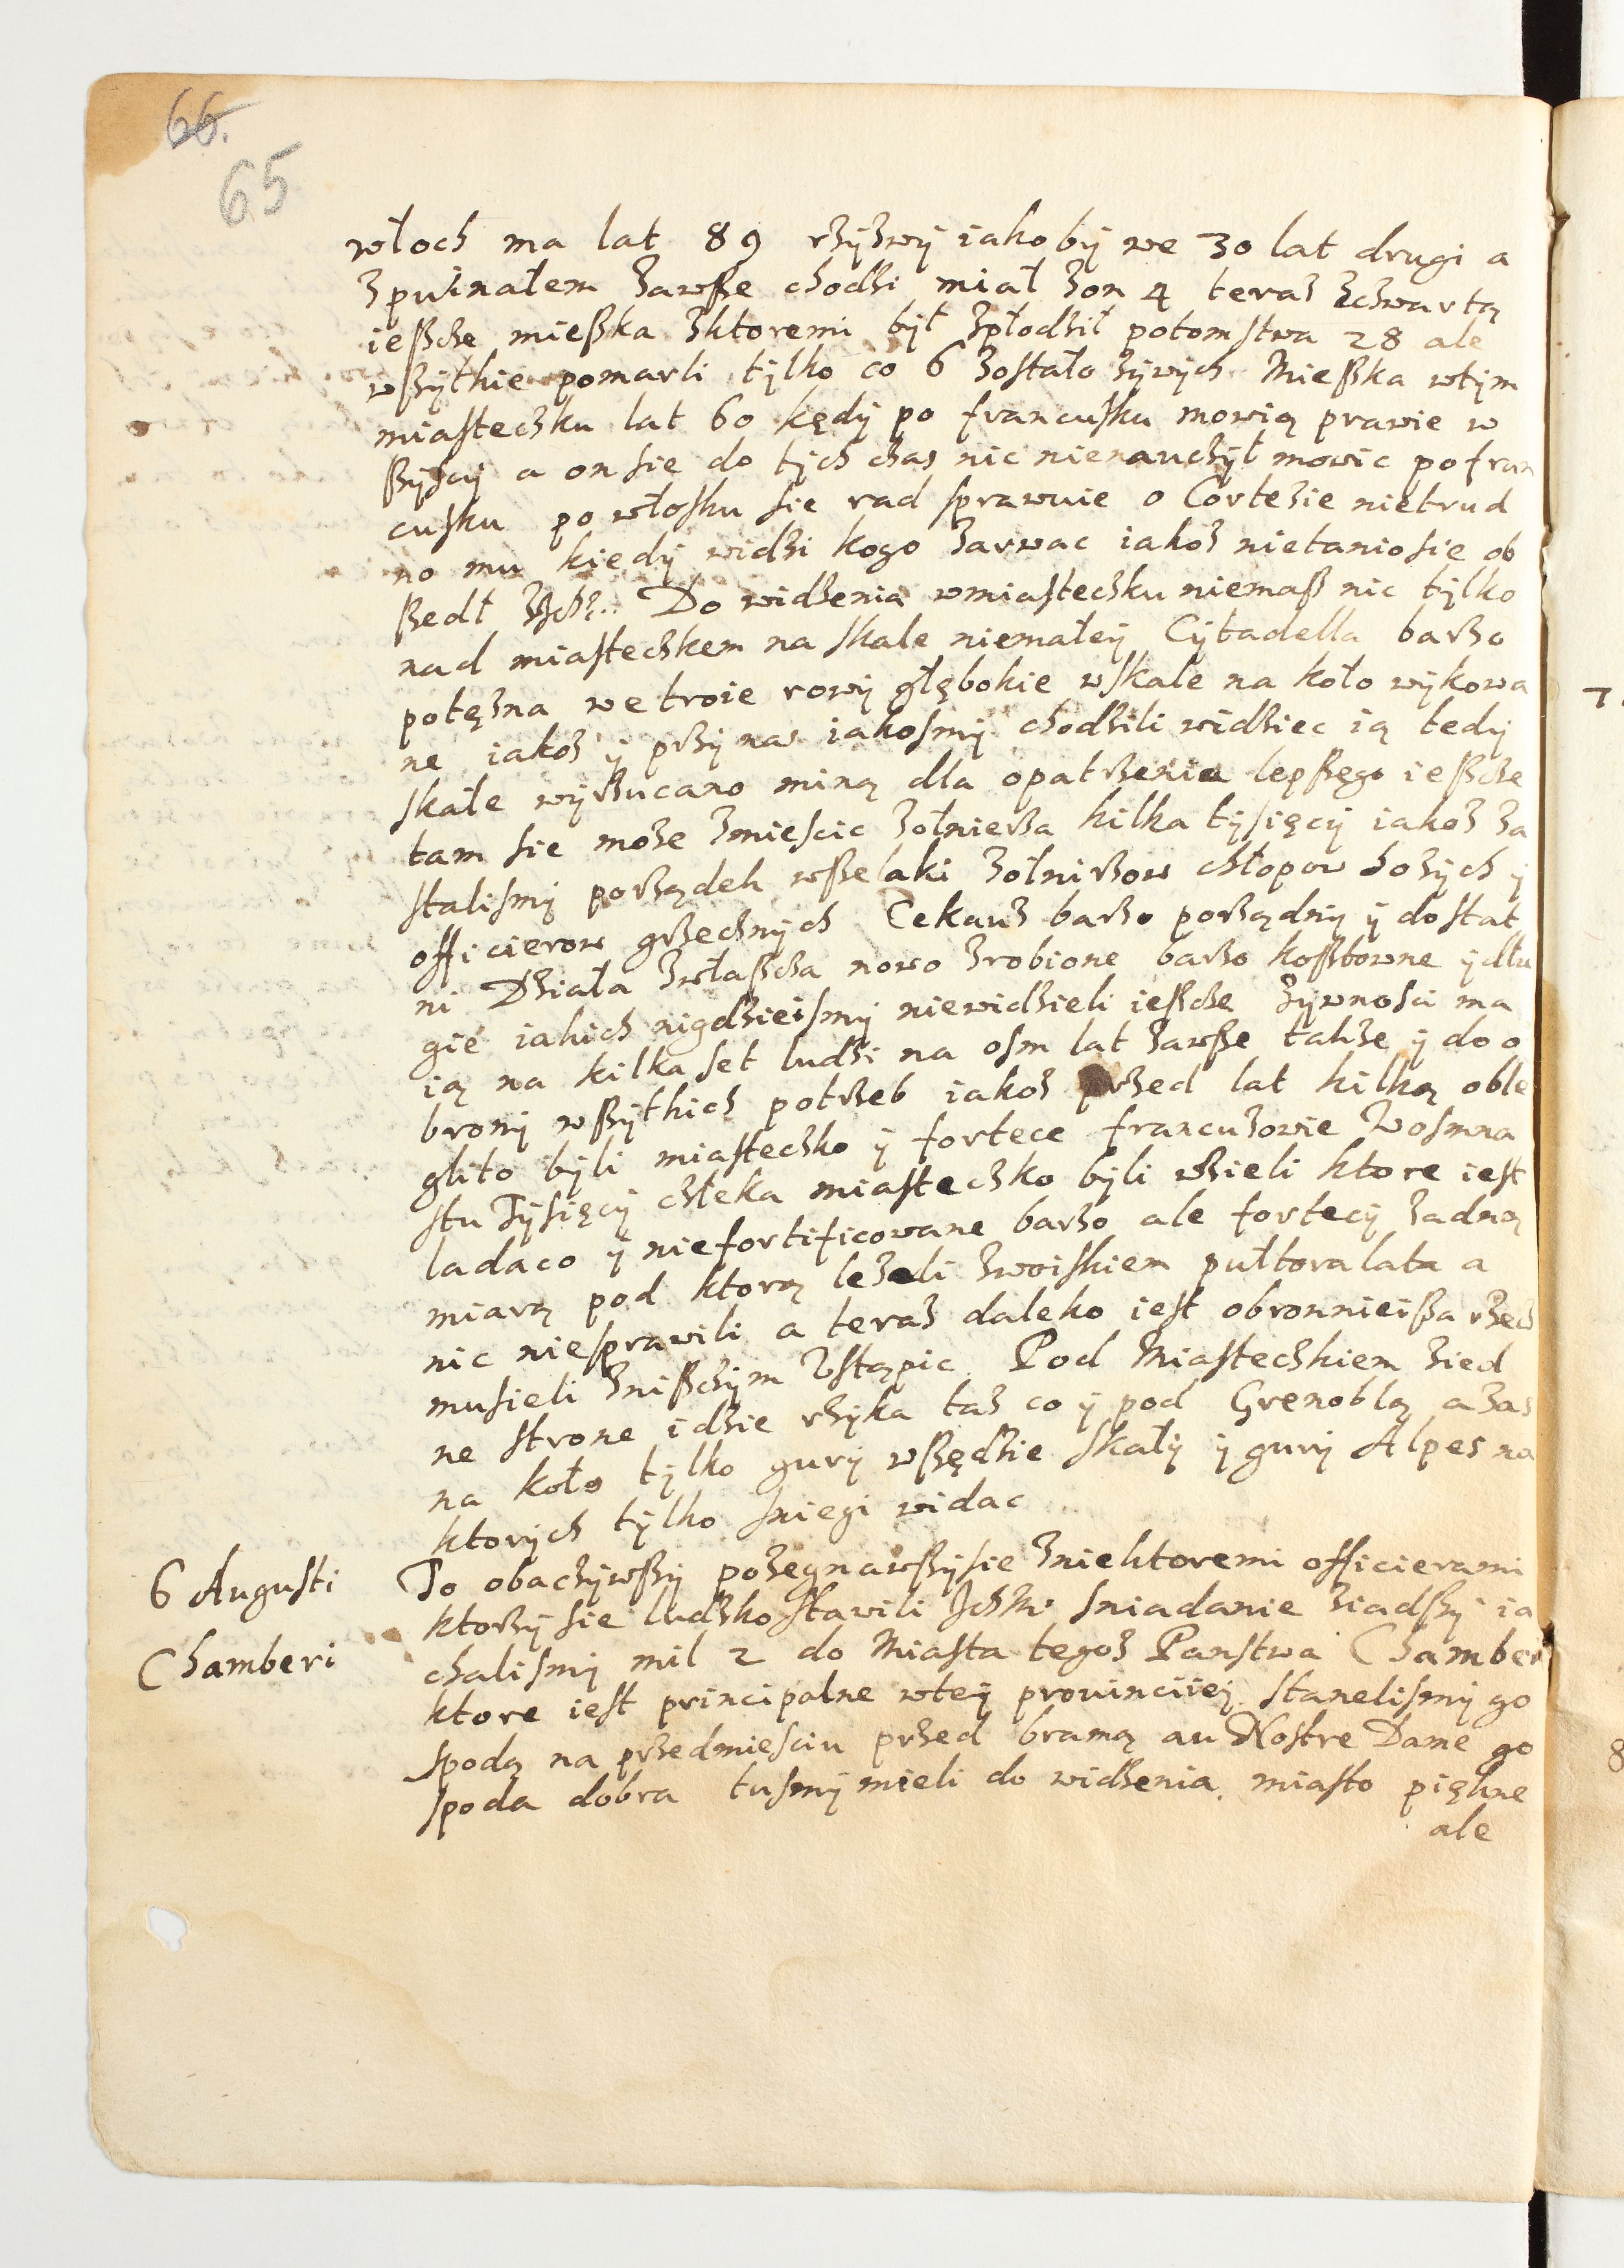 66.
65
włoch ma lat 89 rzyzwy iakoby we 30 lat drugi a
z puinałem zawsze chodzi miał zon 4 teraz zchwartą
ieszcze mieszka zktoremi był zpłodził potomstwa 28 ale
wszytkie pomarli tylko co 6 zostało zywych. Mieszka wtym
miasteczku lat 60 kędy po francusku mowią prawie w
szyscy a on sie do tych czas nic nienauczył mowic po fran
cusku po włosku sie rad sprawuie o Cortezie nietrud
no mu kiedy widzi kogo zarwac iakoz nietanio sie ob
szedł Do widzenia wmiasteczku niemasz nic tylko
nad miasteczkem na skale niemałey Cytadella barzo
potęzna we troie rowy głębokie wskale na koło wykowa
ne iakoz y przy nas iakosmy chodzili widziec ią tedy
skałe wyrzucano miną dla opatrzenia lepszego ieszcze
tam sie moze zmiescic zołnierza kilka tysięcy iakoz za
stalismy porządek wszelaki zołnirzow chłopow hozych y
officierow grzecznych Cekauz barzo porządny y dostat
ni Działa zwłaszcza nowo zrobione barzo kosztowne y dłu
gie iakich nigdzieismy niewidzieli ieszcze Zywnosci ma
ią na kilka set ludzi na osm lat zawsze takze y do o
brony wszytkich potrzeb iakoz przed lat kilką oble
głito byli miasteczko y fortece francuzowie Wosmna
stu Tysięcy człeka miasteczko byli wzieli ktore iest
ladaco y niefortificowane barzo ale fortecy zadną
miarą pod ktorą lezeli zwoiskiem pułtora lata a
nic niesprawili a teraz daleko iest obronnieisza rzecz
musieli znisczym Vstąpic. Pod Miasteczkiem zied
ne strone idzie rzyka taz co y pod Grenoblą a zas
na koło tylko gury wszędzie skały y gury Alpes na
ktorych tylko sniegi widac
6 Augusti
To obaczywszy pozegnawszy sie zniektoremi officierami
ktorzy sie ludzko stawili sniadanie ziadszy ia
Chamberi
chalismy mil 2 do Miasta tegoz Panstwa Chamberi
ktore iest principalne wtey prouinciiey stanelismy go
spodą na przedmiesciu przed bramą au Nostre Dame go
spoda dobra tusmy mieli do widzenia. miasto piękne
ale